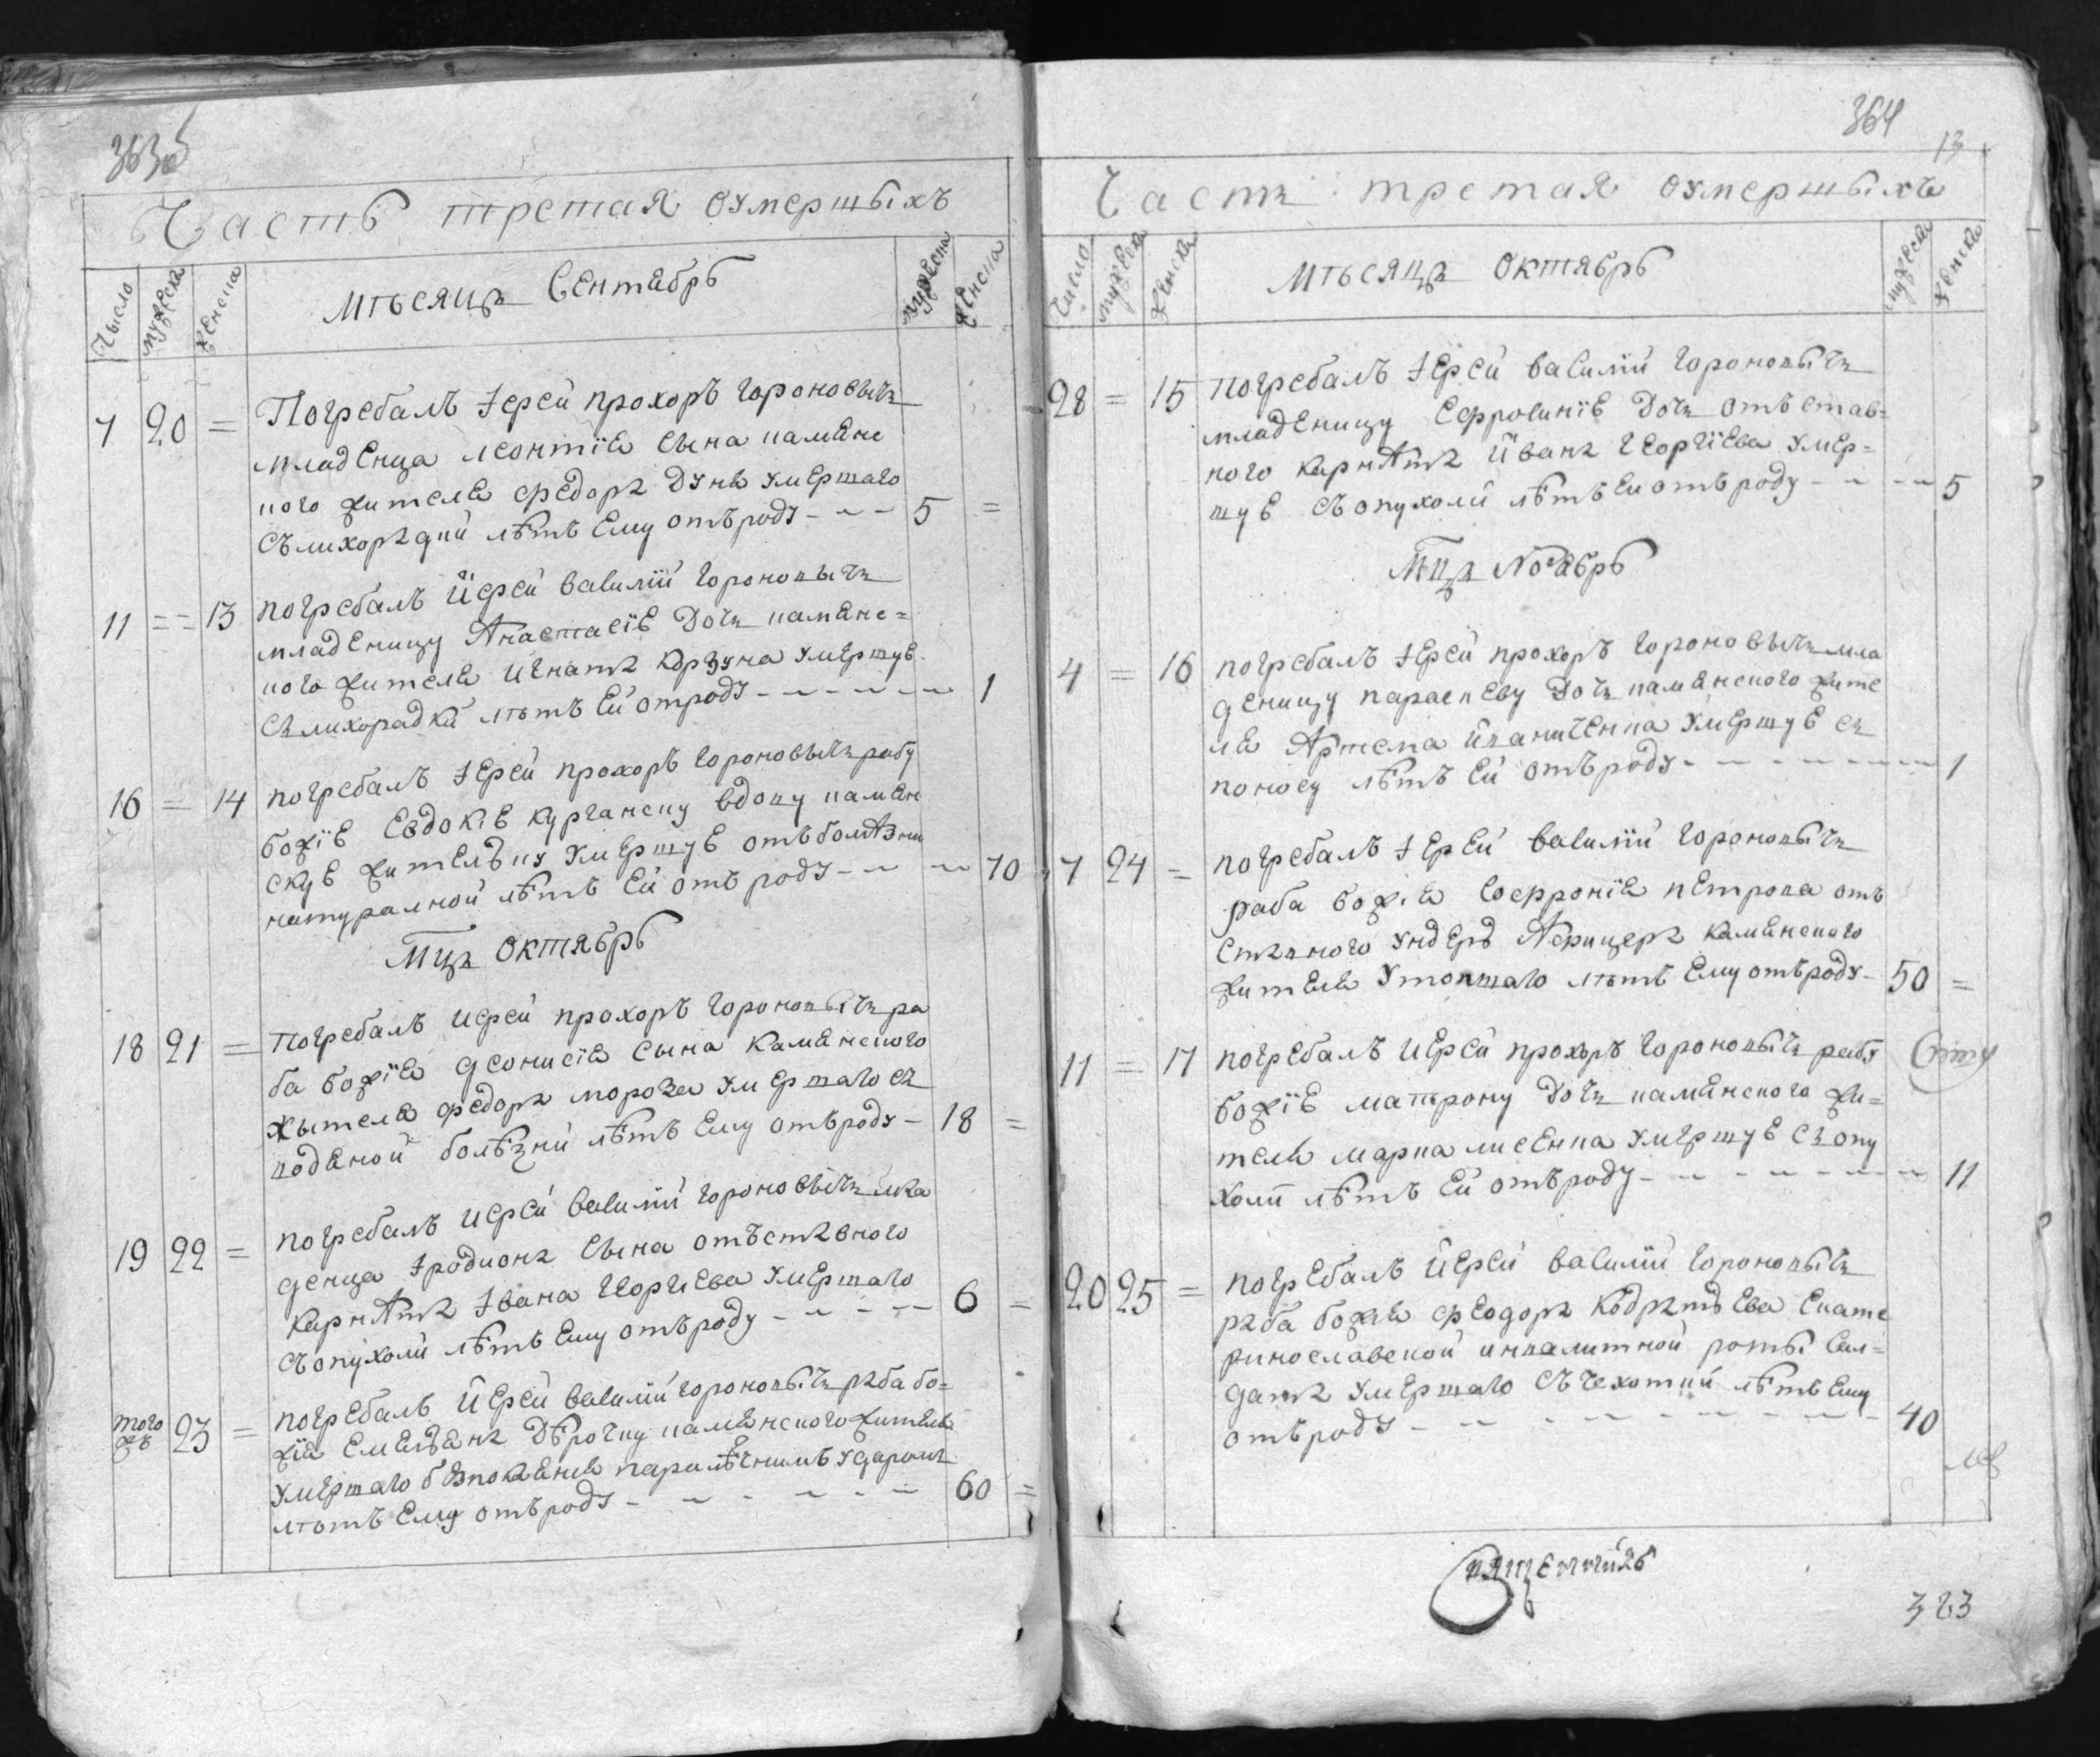 363об
Часть третая оумершыхъ
Чысло мужеска женска Мѣсяцъ Сентябрь мужеска женска
7 20 = Погребалъ Іерей прохоръ гороновычъ
младенца леонтія сына камене
кого жителя федора дуня умершаго
съ лихорадки лѣтъ Ему отъ роду - - - 5 =
11 = = 13 погребалъ Іерей василій гороновычъ
младеницу Анастасіѣ дочъ камене=
кого жителя игната коржуна умершуѣ
съ лихорадки лѣтъ Ей отроду - - - - - 1
16 = 14 погребалъ Іерей прохоръ гороновычъ рабу
божіѣ Евдокіѣ курганску вдову камен
скуѣ жителѣку умершуѣ отъ болѣзни
натуралной лѣтъ Ей отъ роду - - - 70
Мцъ Октябрь
18 21 = погребалъ иерей прохоръ гороновычъ ра
ба божія деонисія сына каменского
жытеля федора мороза умершаго съ
водяной болѣзни лѣтъ Ему отъ роду - 18 =
19 22 = погребалъ иерей василій гороновычъ мла
денца Іродиона сына отъставного
Карнѣта Івана Георгиева умершаго
съ опухоли лѣтъ Ему отъ роду - - - - 6 =
того жъ 23 = погребалъ Іерей василій гороновычъ раба бо=
жія каменского жителя
умершаго без покаянія ударомъ
лѣтъ Ему отъ роду - - - - - - 60 =
364
13
Часть третая оумершыхъ
Число мужеска женска Мѣсяцъ Октябрь мужеска женска
28 = 15 погребалъ Іерей василій гороновычъ
младеницу Ефросиніѣ дочъ отъстав=
ного карнѣта Ивана Георгіева умер=
шуѣ съ опухоли лѣтъ Еи отъ роду - - - 5
Мцъ Ноябрь
4 = 16 погребалъ Іерей прохоръ гороновычъ мла
деницу параскеву дочъ каменского жите
ля Артема иваниченка умершуѣ съ
поносу лѣтъ Ей отъ роду - - - - - - - 1
7 24 = погребалъ Іерей василій гороновычъ
раба божія Софронія петрова отъ
ставного ундеръ Афицера каменского
жителя утопшаго лѣтъ Ему отъ роду - 50 =
11 = 17 погребалъ иерей прохоръ гороновычъ рабу
божіѣ матрону дочъ каменского жи=
теля марка лисенка умершуѣ съ опу
холи лѣтъ Ей отъ роду - - - - - - - 11
20 25 = погребалъ Іерей василій гороновычъ
раба божія феодора Кодратѣева Екате
ринославской инвалитной роты сал=
дата умершаго съ чехотки лѣтъ Ему
отъ роду - - - - - - - - - 40
323